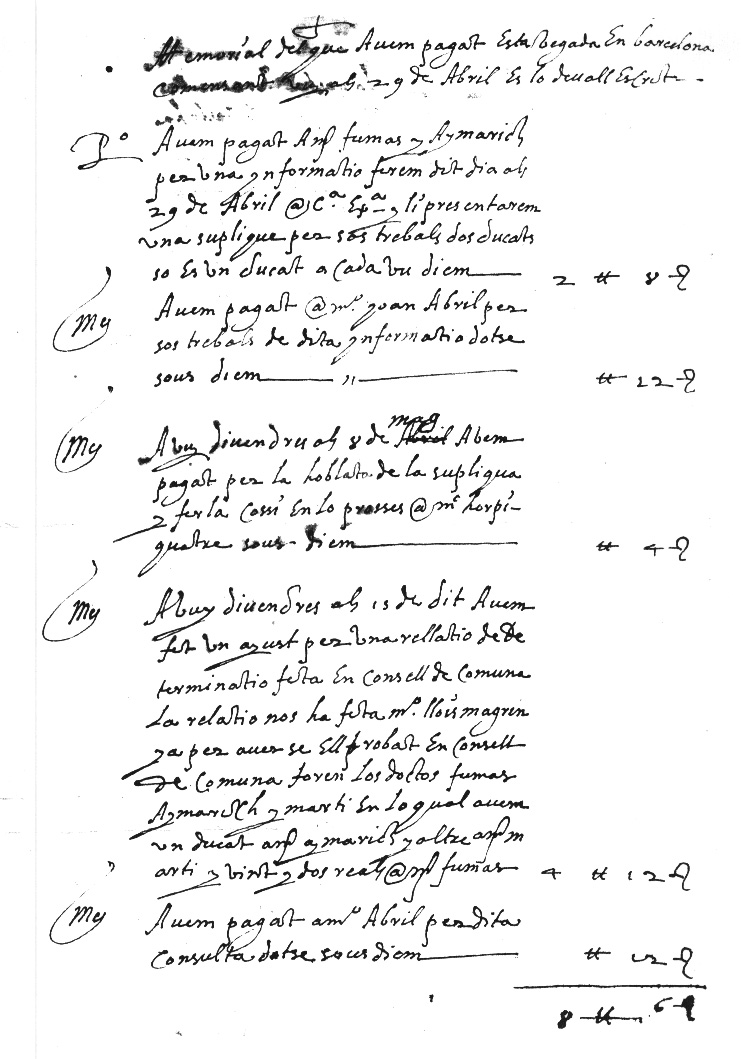 Memorial del que Avem pagat Esta vegada En barcelona
comensant als 29 de Abril Es lo devall Escrit
Po Avem pagat fumas y Aymarich
per una ynformatio ferem dit dia als
29 de Abril y li presentarem
una suplique per sos trebals dos ducats
so Es un ducat a Cada vu diem 2 ₶ 8 ß
Mes Avem pagat @ mo. yoan Abril per
sos trebals de dita ynformatio dotse
sous diem ₶ 12 ß
Mes Avuy divendres als 8 de mag Abril Abem
pagat per la hoblata de la supliqua
y ferla Cossi En lo prosses @ me horpi
quatre sous diem ₶ 4 ß
Mes Abuy divendres als 15 de dit Avem
fet un azust per una rellatio de De
terminatio feta En Consell de Comuna
La relatio nos ha feta mo. lloismagrin
ya per aver se Ell probat En Consell
De Comuna foren Los doctos fumas
Aymarich y marti En lo qual avem
un ducat aymarich y altre m
arti y vint y dos reals @ fumas 4 ₶ 12 ß
Mes Avem pagat a mo Abril per dita
Consulta dotse sous diem ₶ 12 ß
8 ₶ 6 ß